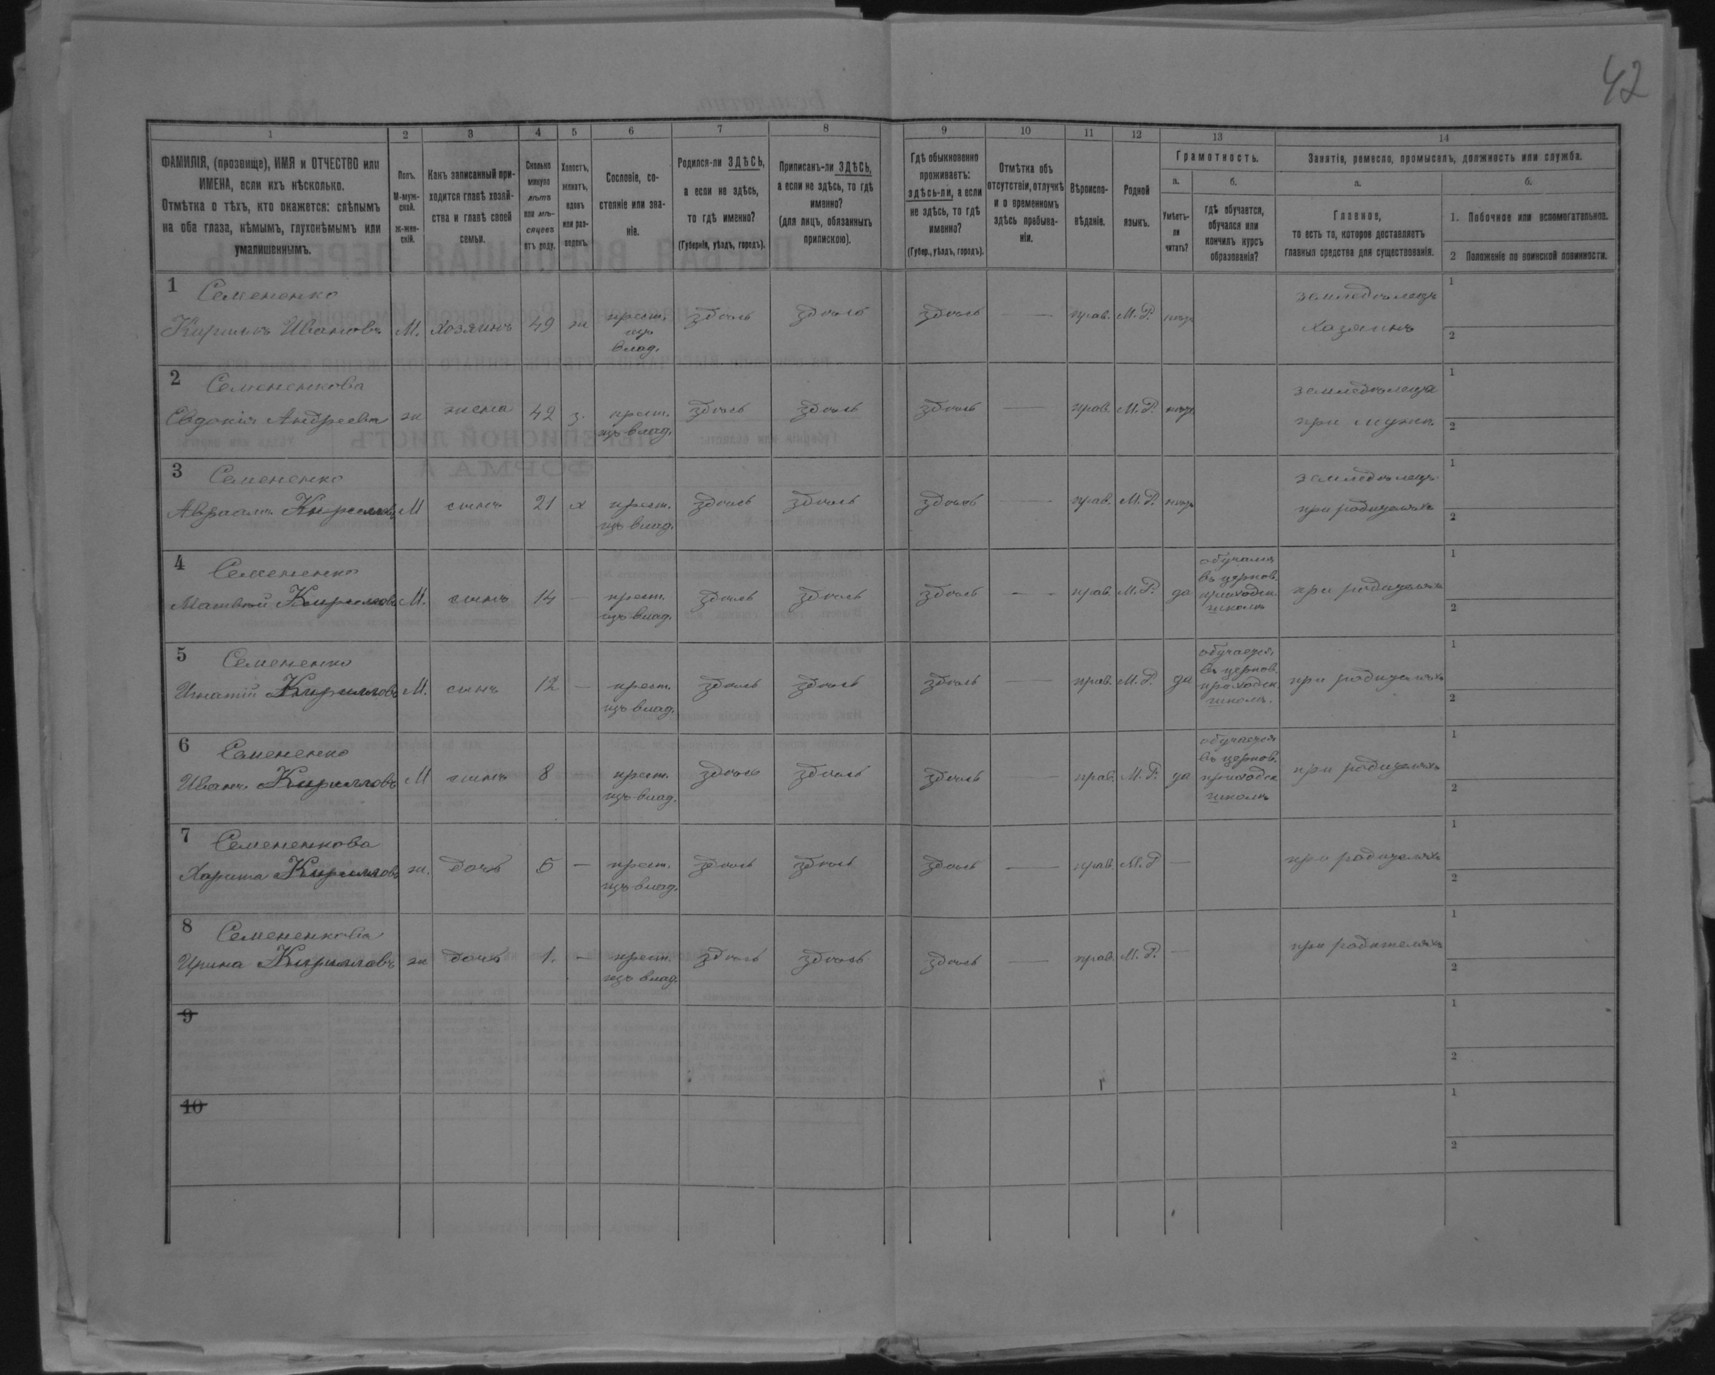 42
1 2 3 4 5 6 7 8 9 10 11 12 13 14
ФАМИЛІЯ, (прозвище), ИМЯ и ОТЧЕСТВО или
ИМЕНА, если ихъ нѣсколько.
Отмѣтка о тѣхъ, кто окажется: слѣпымъ
на оба глаза, нѣмымъ, глухонѣмымъ или
умалишеннымъ.
Полъ.
М-муж-
ской.
Ж-жен-
скій.
Какъ записанный при-
ходится главѣ хозяй-
ства и главѣ своей
семьи.
Сколько
минуло
лѣтъ
или мѣ-
сяцевъ
отъ роду.
Холостъ,
женатъ,
вдовъ
или раз-
веденъ.
Сословіе, со-
стояніе или зва-
ніе.
Родился-ли ЗДѢСЬ,
а если не здѣсь,
то гдѣ именно?
(Губернія, уѣздъ, городъ).
Приписанъ-ли ЗДѢСЬ,
а если не здѣсь, то гдѣ
именно?
(для лицъ, обязанныхъ
припискою).
Гдѣ обыкновенно
проживаетъ:
здѣсь-ли, а если
не здѣсь, то гдѣ
именно?
(Губер., уѣздъ, городъ).
Отмѣтка объ
отсутствіи, отлучкѣ
и о временномъ
здѣсь пребыва-
ніи.
Вѣроиспо-
вѣданіе.
Родной
языкъ.
Грамотность.
а.
Умѣетъ-
ли
читать?
б.
гдѣ обучается,
обучался или
кончилъ курсъ
образованія?
Занятія, ремесло, промыселъ, должность или служба.
а.
Главное,
то есть то, которое доставляетъ
главныя средства для существованія.
б.
1. Побочное или вспомогательное.
2 Положеніе по воинской повинности.
1 Семененко
Кириллъ Ивановъ М. хозяинъ 49 ж крест. изъ влад. здѣсь здѣсь здѣсь — прав. М.Р. нѣтъ земледѣлецъ хозяинъ 1 2
2 Семененкова
Евдокія Андреева ж жена 42 з. крест. изъ влад. здѣсь здѣсь здѣсь — прав. М.Р. нѣтъ земледѣлица при мужѣ 1 2
3 Семененко
Авраамъ Кириловъ М сынъ 21 х крест. изъ влад. здѣсь здѣсь здѣсь — прав. М.Р. нѣтъ земледѣлецъ при родителяхъ 1 2
4 Семененко
Матвѣй Кириловъ М. сынъ 14 — крест. изъ влад. здѣсь здѣсь здѣсь — — прав. М.Р. да обучался въ церков. приходск. школѣ при родителяхъ 1 2
5 Семененко
Игнатій Кириловъ М. сынъ 12 — крест. изъ влад. здѣсь здѣсь здѣсь — прав. М.Р. да обучается въ церков. приходск. школѣ. при родителяхъ 1 2
6 Семененко
Иванъ Кирилловъ М сынъ 8 крест. изъ влад. здѣсь здѣсь здѣсь — прав. М.Р. да обучается въ церков. приходск. школѣ при родителяхъ 1 2
7 Семененкова
Харитина Кирилловъ ж. дочь 5 — крест. изъ влад. здѣсь здѣсь здѣсь — прав. М.Р — при родителяхъ 1 2
8 Семененкова
Ирина Кирилловъ ж дочь 1. — крест. изъ влад. здѣсь здѣсь здѣсь — прав. М.Р. — при родителяхъ 1 2
9 1 2
10 1 2